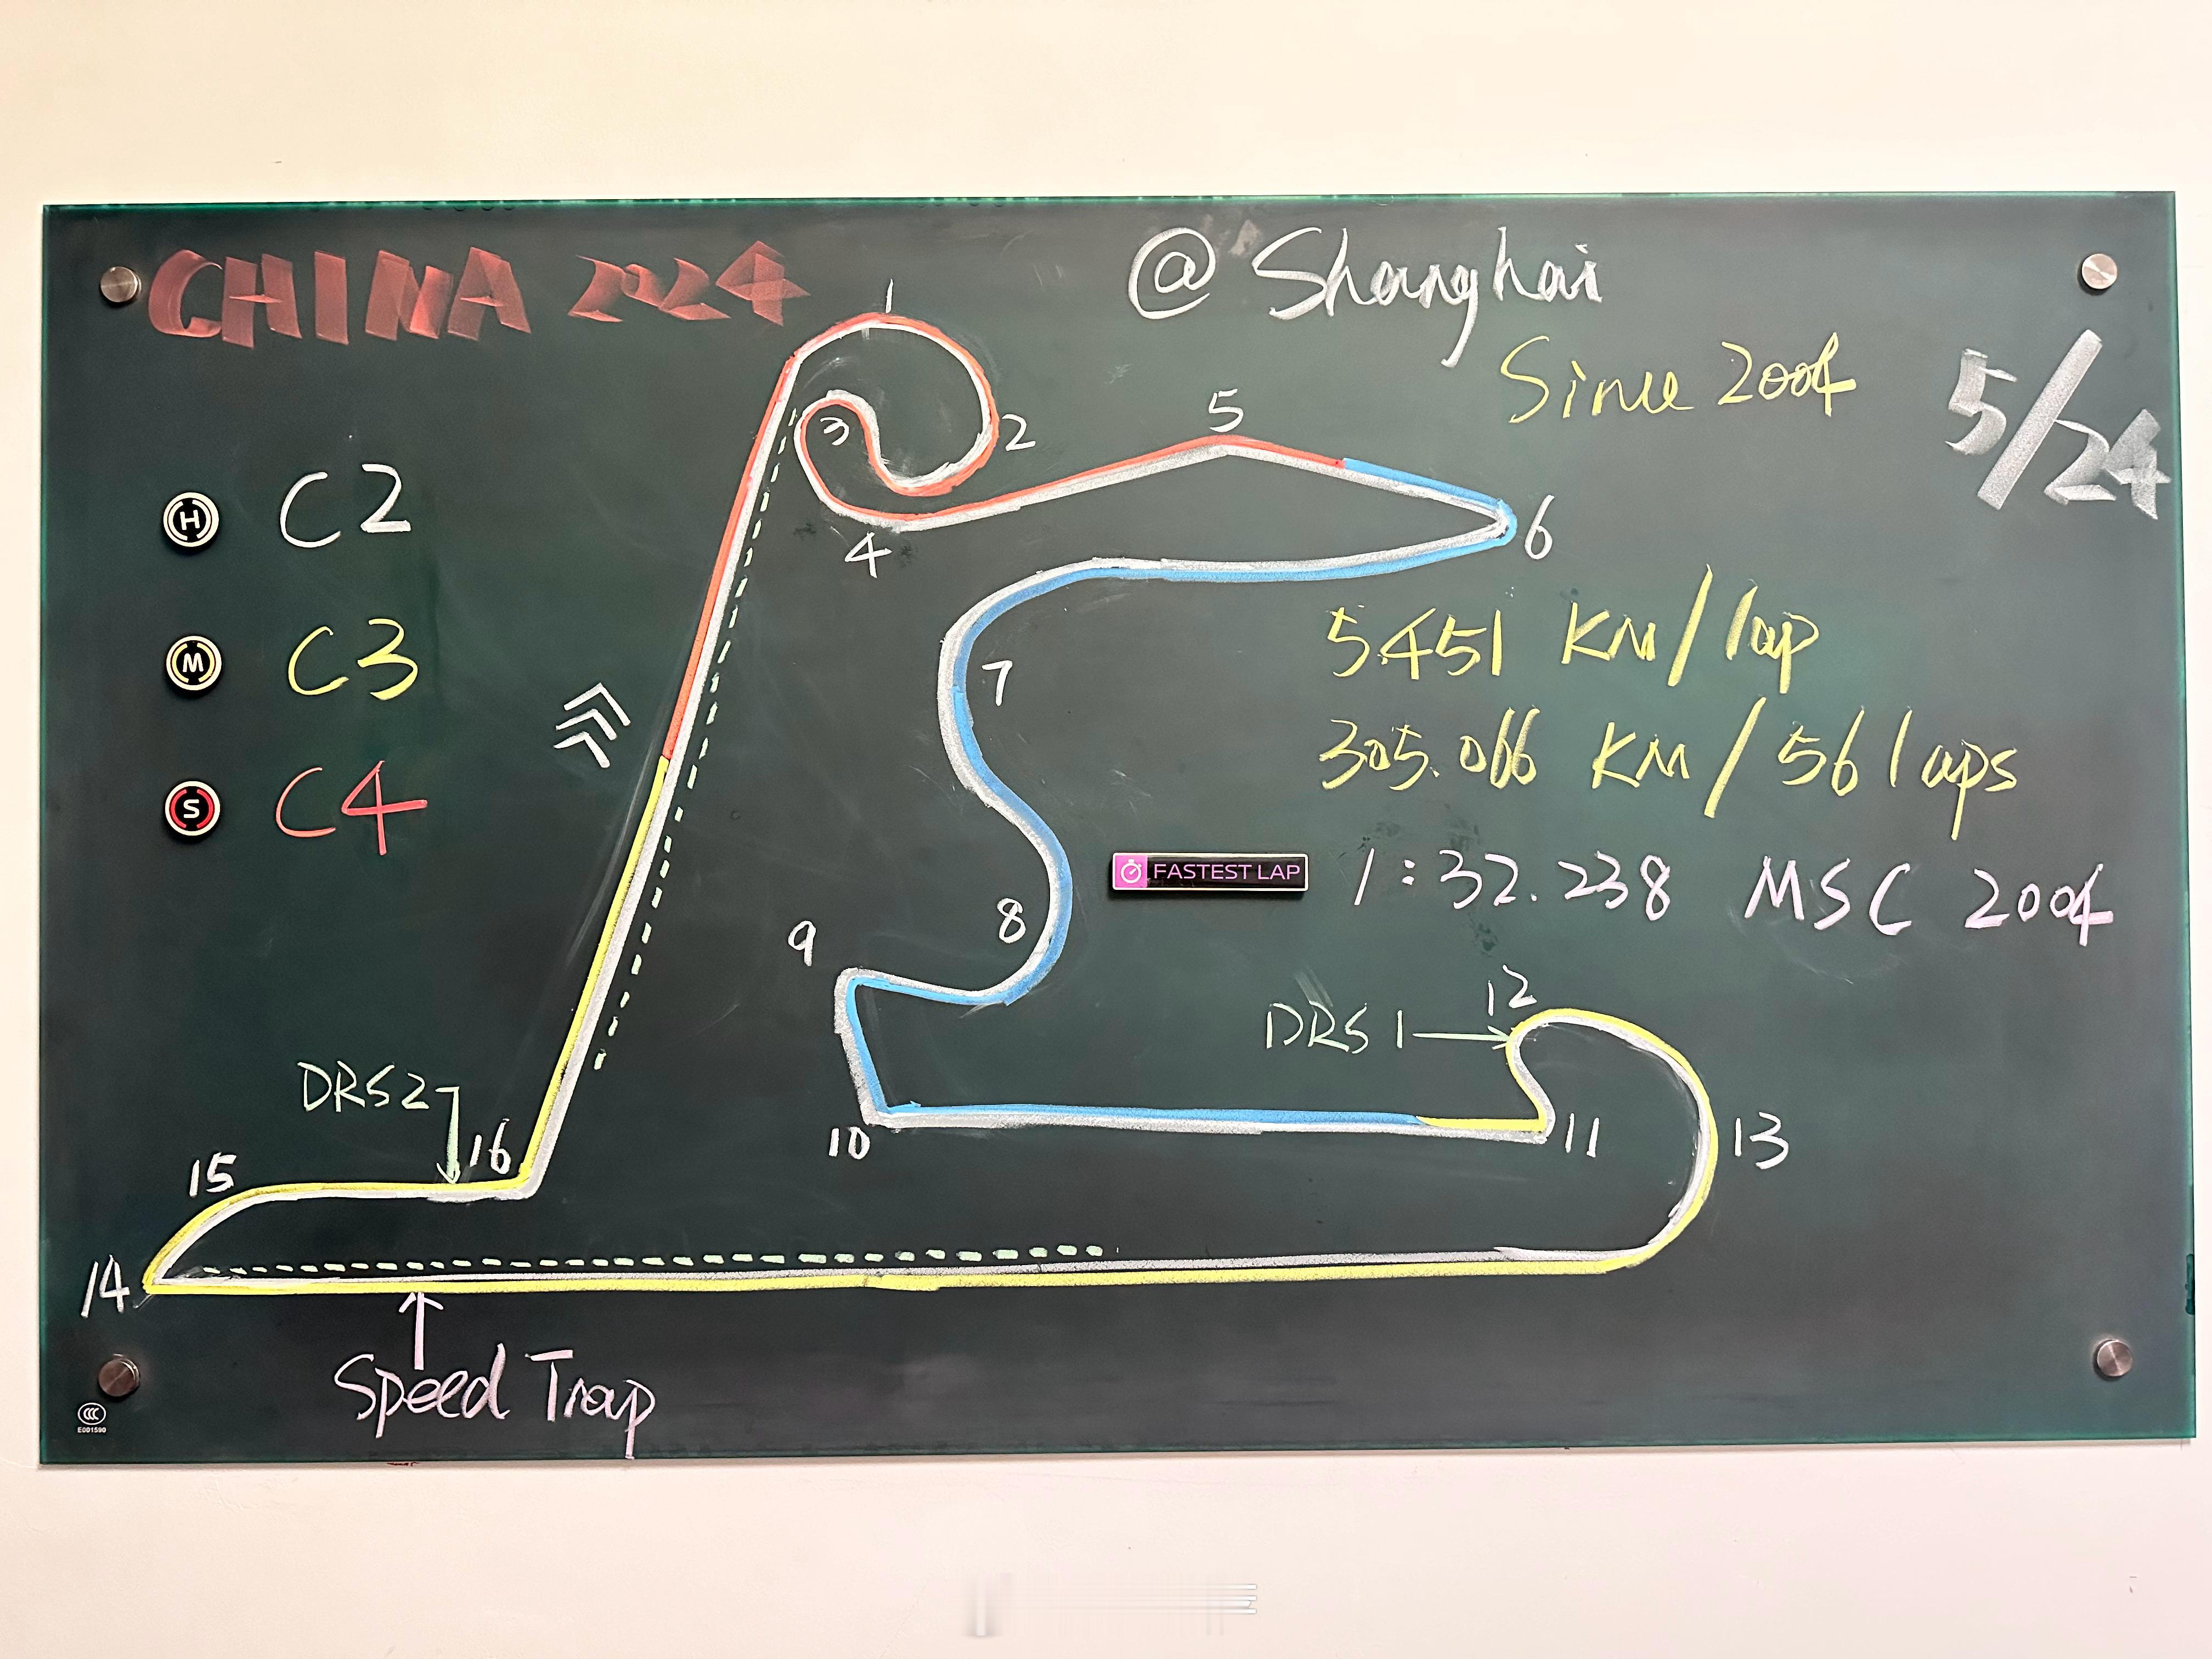 CHINA 2024
@ Shanghai
Since 2004
5/24
H C2
M C3
S C4
1
2
3
4
5
6
7
8
9
10
11
12
13
14
15
16
5.451 KM/lap
305.066 KM/56 laps
FASTEST LAP 1:32.238 MSC 2004
DRS 1
DRS2
Speed Trap
CCC
E001590